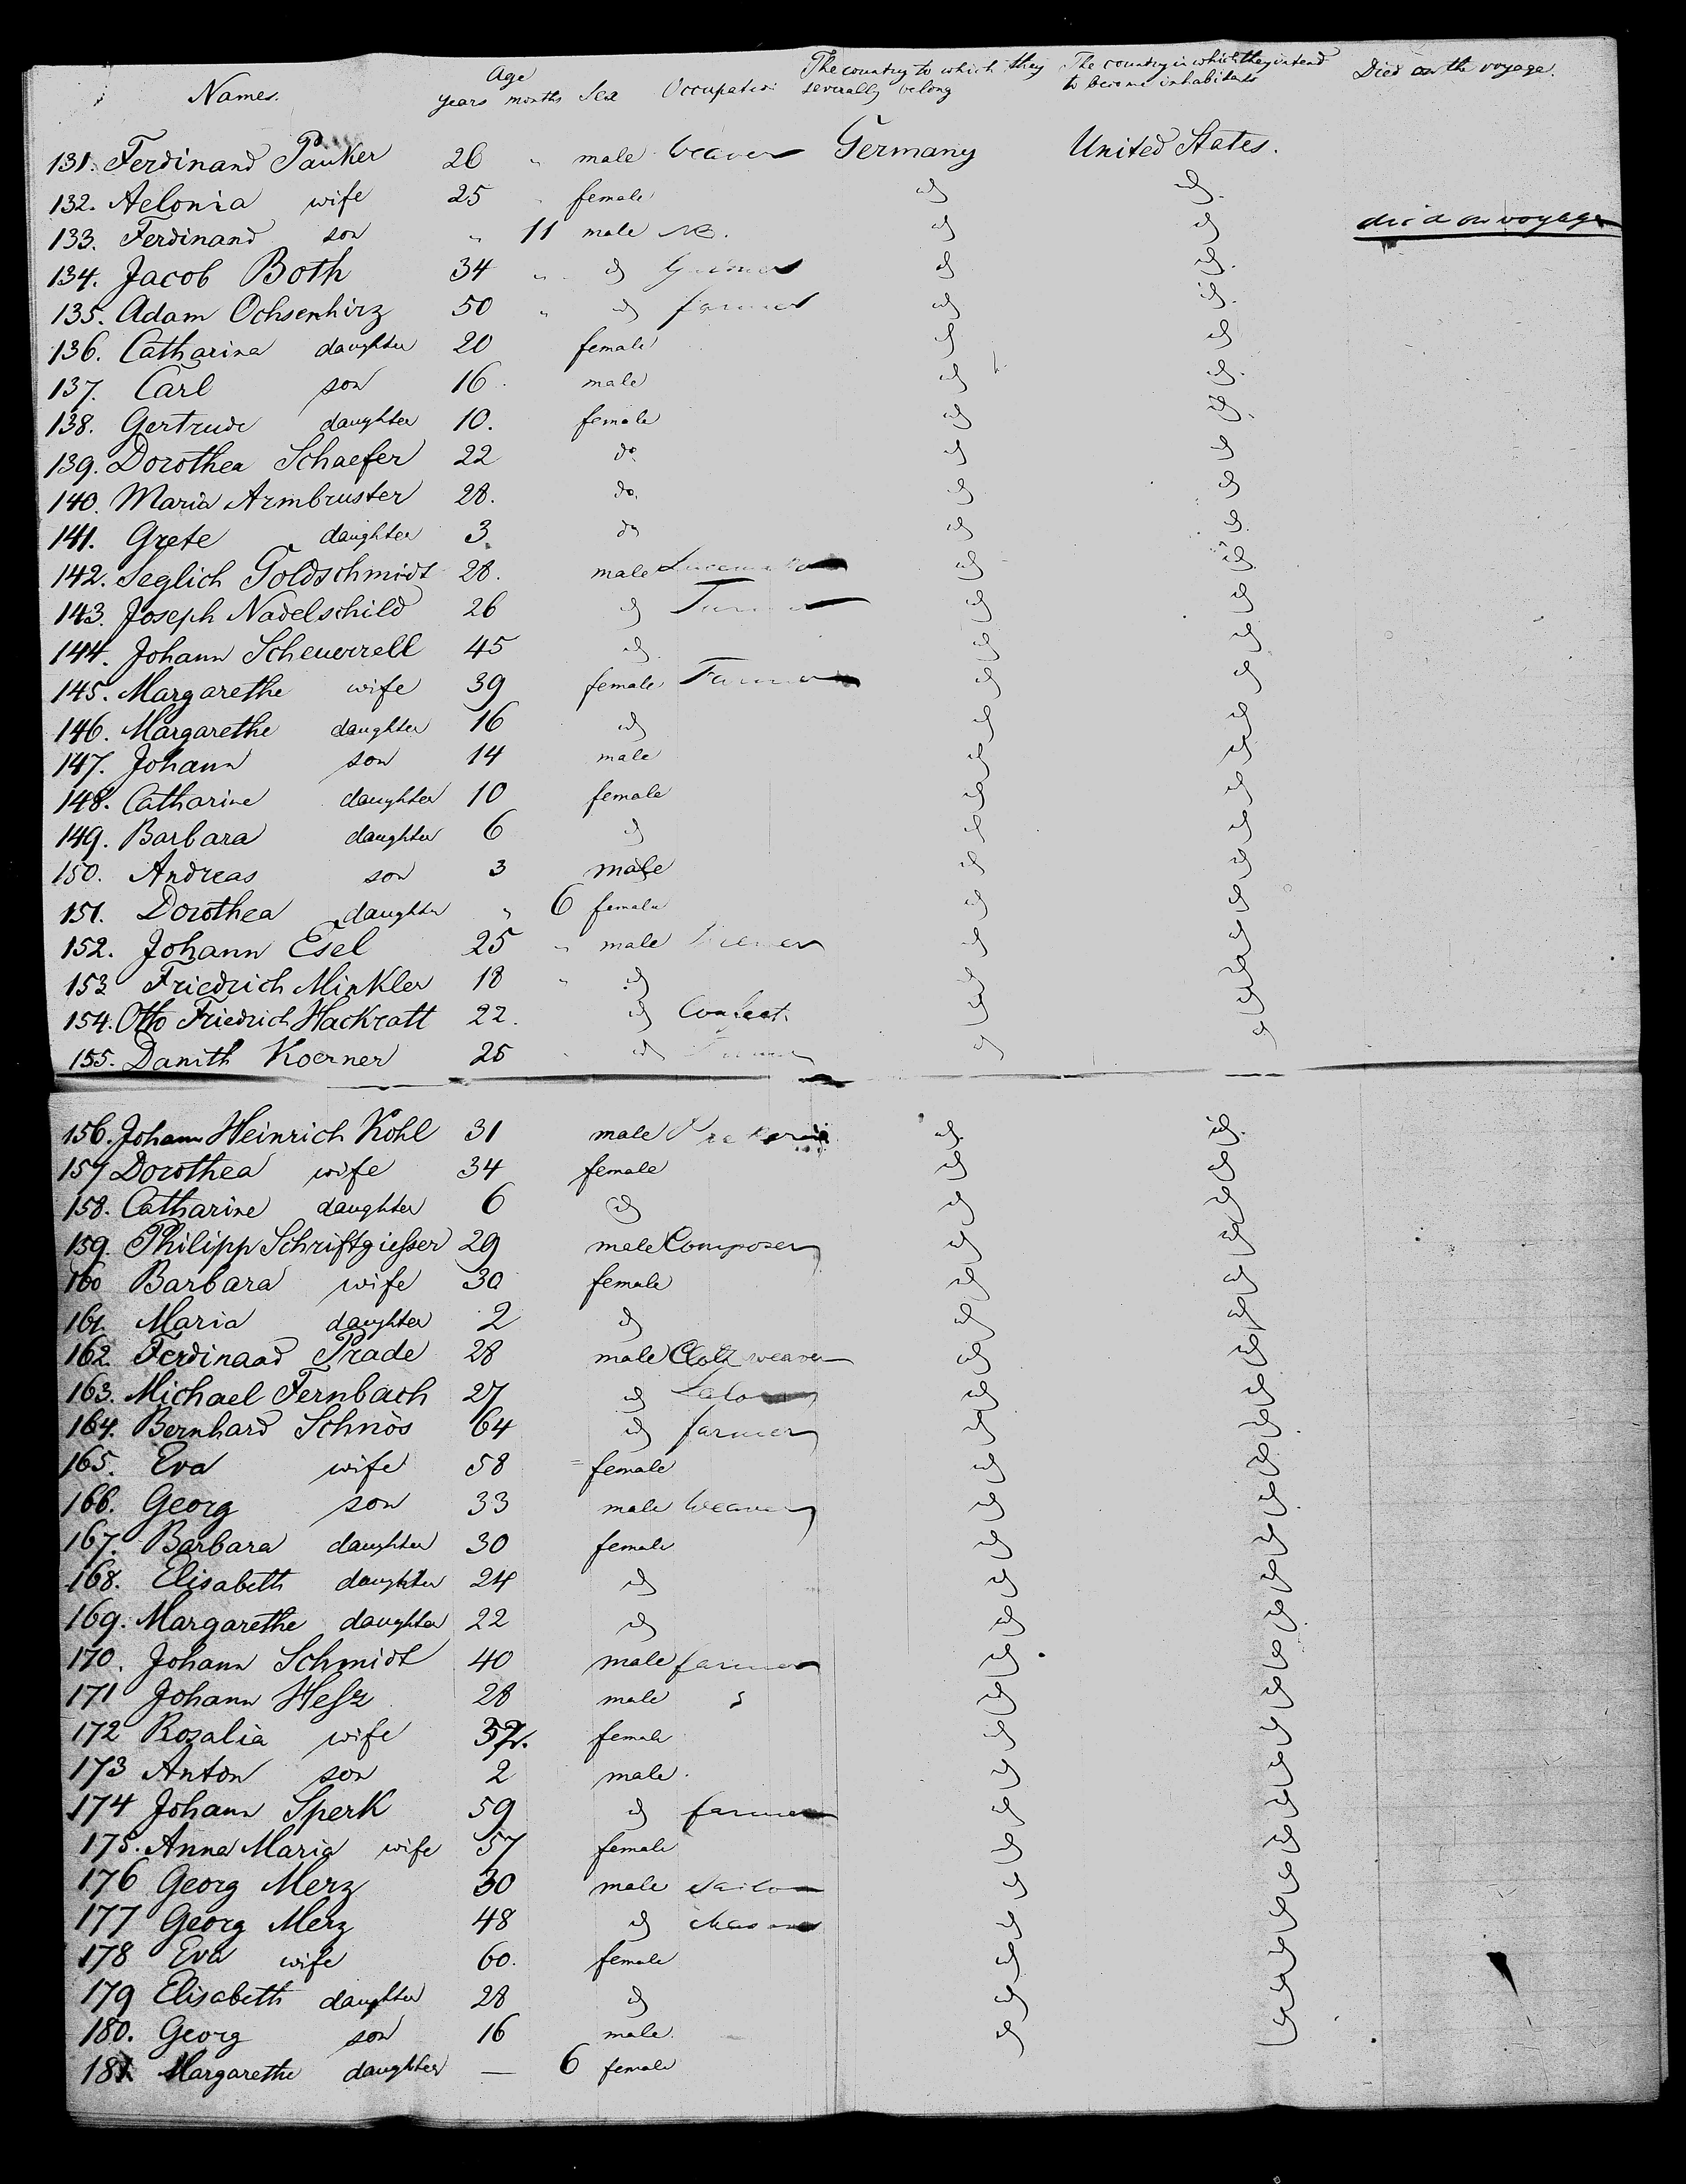 Names. Age years months Sex Occupation The country to which they severally belong The country in which they intend to become inhabitants Died on the voyage.
131. Ferdinand Pauker 26 " male Weaver Germany United States.
132. Aelonia wife 25 " female id id.
133. Ferdinand son " 11 male id id died on voyage
134. Jacob Both 34 " id id id.
135. Adam Ochsenhirz 50 " id farmer id id.
136. Catharina daughter 20 female id id
137. Carl son 16. male id id.
138. Gertrude daughter 10. female id id.
139. Dorothea Schaefer 22 do id id
140. Maria Armbruster 28. do. id id
141. Grete daughter 3 do id id.
142. Seglich Goldschmidt 28. male id id
143. Joseph Nadelschild 26 id id id
144. Johann Scheuerrell 45 id id id
145. Margarethe wife 39 female Farmer id id
146. Margarethe daughter 16 id id id
147. Johann son 14 male id id
148. Catharine daughter 10 female id id
149. Barbara daughter 6 id id id
150. Andreas son 3 male id id
151. Dorothea daughter " 6 female id id
152. Johann Esel 25 " male id id
153 Friedrich Minkler 18 " id id id
154. Otto Friedrich Hackratt 22. id id id
155. Danith Koerner 25 id id id
156. Johann Heinrich Kohl 31 male id. id.
157 Dorothea wife 34 female id id
158. Catharine daughter 6 id id id
159. Philipp Schriftgiesser 29 male Composer id id
160 Barbara wife 30 female id id
161. Maria daughter 2 id id id
162. Ferdinaad Prade 28 male Cloth weaver id id
163. Michael Fernbach 27 id id id
164. Bernhard Schnös 64 id farmer id id
165. Eva wife 58 female id id
166. Georg son 33 male Weaver id id
167. Barbara daughter 30 female id id
168. Elisabeth daughter 24 id id id
169. Margarethe daughter 22 id id id
170. Johann Schmidt 40 male farmer id id
171 Johann Hesz 28 male id id
172 Rozalia wife female id id
173 Anton son 2 male. id id
174 Johann Sperk 59 id farmer id id
175. Anna Maria wife 57 female id id
176 Georg Merz 30 male id id
177 Georg Merz 48 id id id
178 Eva wife 60. female id id
179 Elisabeth daughter 28 id id id
180. Georg son 16 male. id id
181 Margarethe daughter — 6 female